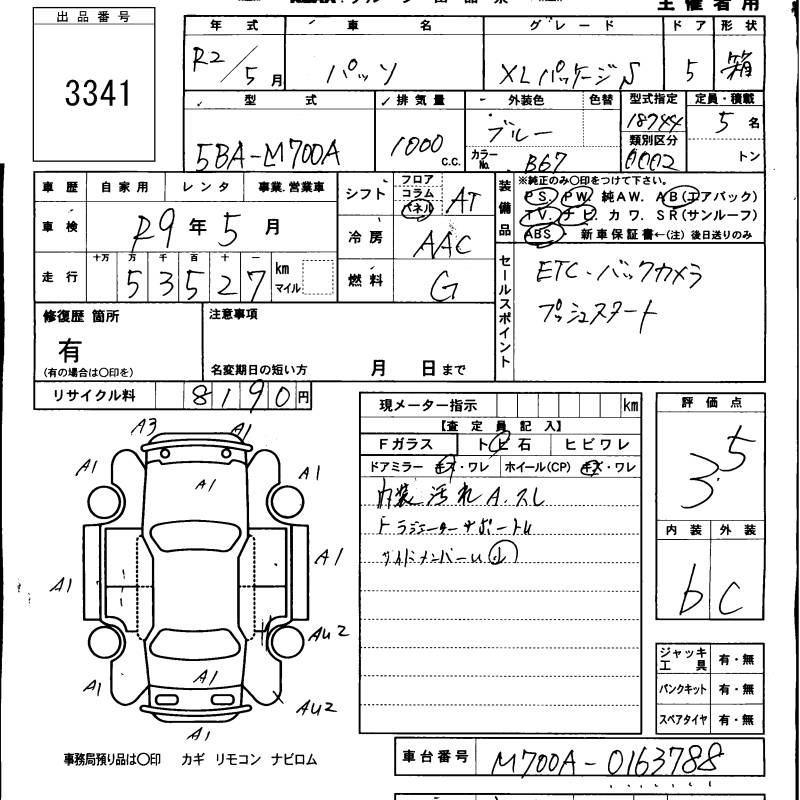 主催者用
出品番号
3341
年式 車名 グレード ドア 形状
R2/5月 パッソ XLパッケージS 5 箱
型式 排気量 外装色 色替 型式指定 定員・積載
5BA-M700A 1000c.c. ブルー 18744 5名
カラーNo. B67 類別区分 0002 トン
車歴 自家用 レンタ 事業.営業車
車検 R9年5月
走行 十万 万 千 百 十 一
53527 km マイル
シフト フロア コラム パネル AT
冷房 AAC
燃料 G
装備品 ※純正のみ〇印をつけて下さい。
PS. PW. 純AW. AB(エアバック)
TV. ナビ. カワ. SR(サンルーフ)
ABS. 新車保証書←(注)後日送りのみ
セールスポイント
ETC・バックカメラ
プッシュスタート
修復歴 箇所
有
(有の場合は〇印を)
注意事項
名変期日の短い方 月 日まで
リサイクル料 8190円
現メーター指示 km
【査定員記入】
Fガラス トビ石 ヒビワレ
ドアミラー キズ・ワレ ホイール(CP) キズ・ワレ
内装 汚れ A.スレ
F ラジエーターサポートU
サイドメンバーU 小
評価点
3.5
内装 外装
b C
A3 A1
A1 A1 A1
A1 A1
AU2
A1 A1 AU2
A1
ジャッキ工具 有・無
パンクキット 有・無
スペアタイヤ 有・無
事務局預り品は〇印 カギ リモコン ナビロム
車台番号 M700A-0163788